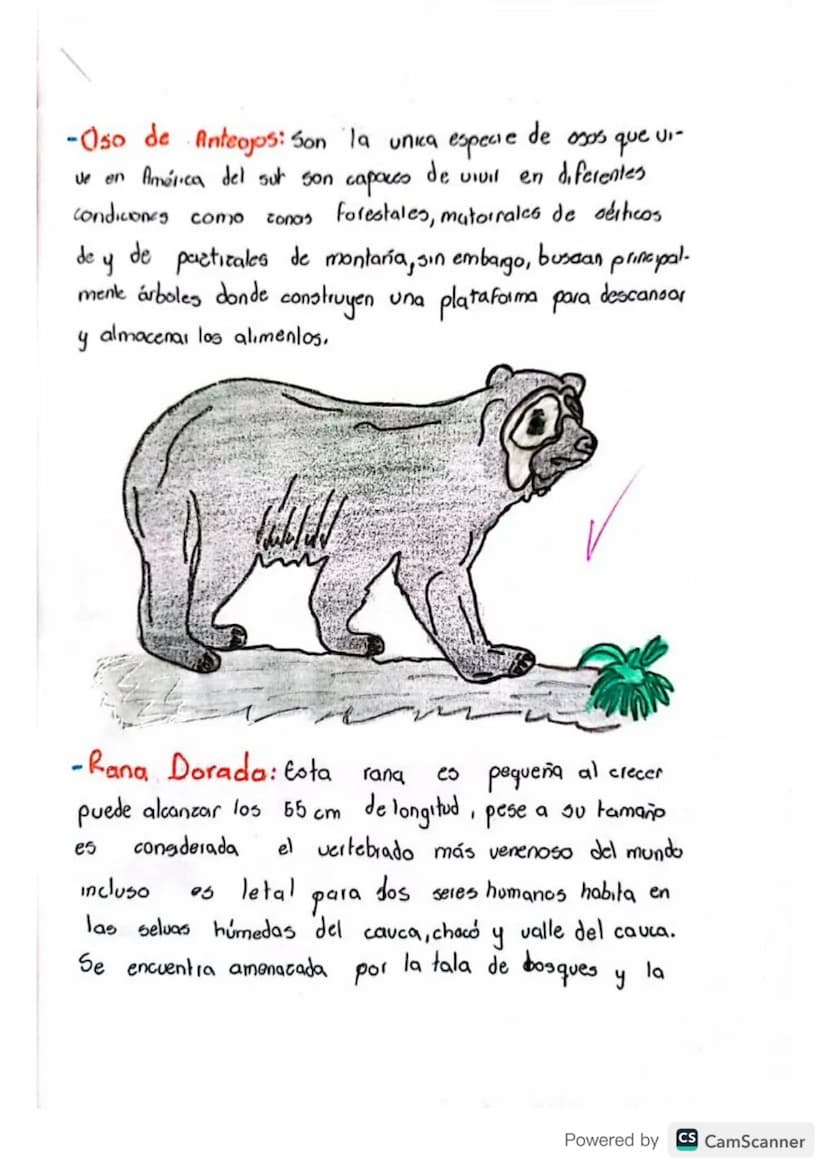 -Oso de Anteojos: Son la unica especie de osos que vi-
ve en América del sur son capaces de vivir en diferentes
condiciones como zonas forestales, matorrales de sérticos
de y de pactizales de montaría, sin embargo, buscan principal-
mente árboles donde construyen una plataforma para descansar
y almacenar los alimentos.
-Rana Dorada: Esta rana es pequeña al crecer
puede alcanzar los 55 cm de longitud, pese a su tamaño
es considerada el vertebrado más venenoso del mundo
incluso es letal para dos seres humanos habita en
las selvas húmedas del cauca, chocó y valle del cauca.
Se encuentra amenazada por la tala de bosques y la
Powered by CS CamScanner